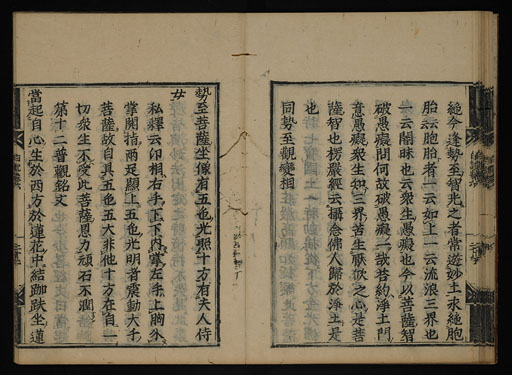 絶今逢勢至智光之者常遊妙土永絶胞
胎云胞胎者一云如上一云流浪三界也
一云闇昧也云衆生愚癡也今以菩薩智
破愚癡問何故破愚癡一哉答約淨土門
意愚癡衆生如三界苦生厭欣之心是菩
薩智也楞嚴經云攝念佛人歸於淨土是
也
同勢至觀變相
勢至菩薩坐像有五色光照十方有夫人侍
女
私釋云印相右手上下内掌左手上胸外
掌開指兩足顯上五色光明者震動大千
菩薩故自具五色五大非他十方在自一
切衆生不受此菩薩恩力頑石不潤
第十二普觀銘文
當起自心生於西方於蓮花中結跏趺坐蓮